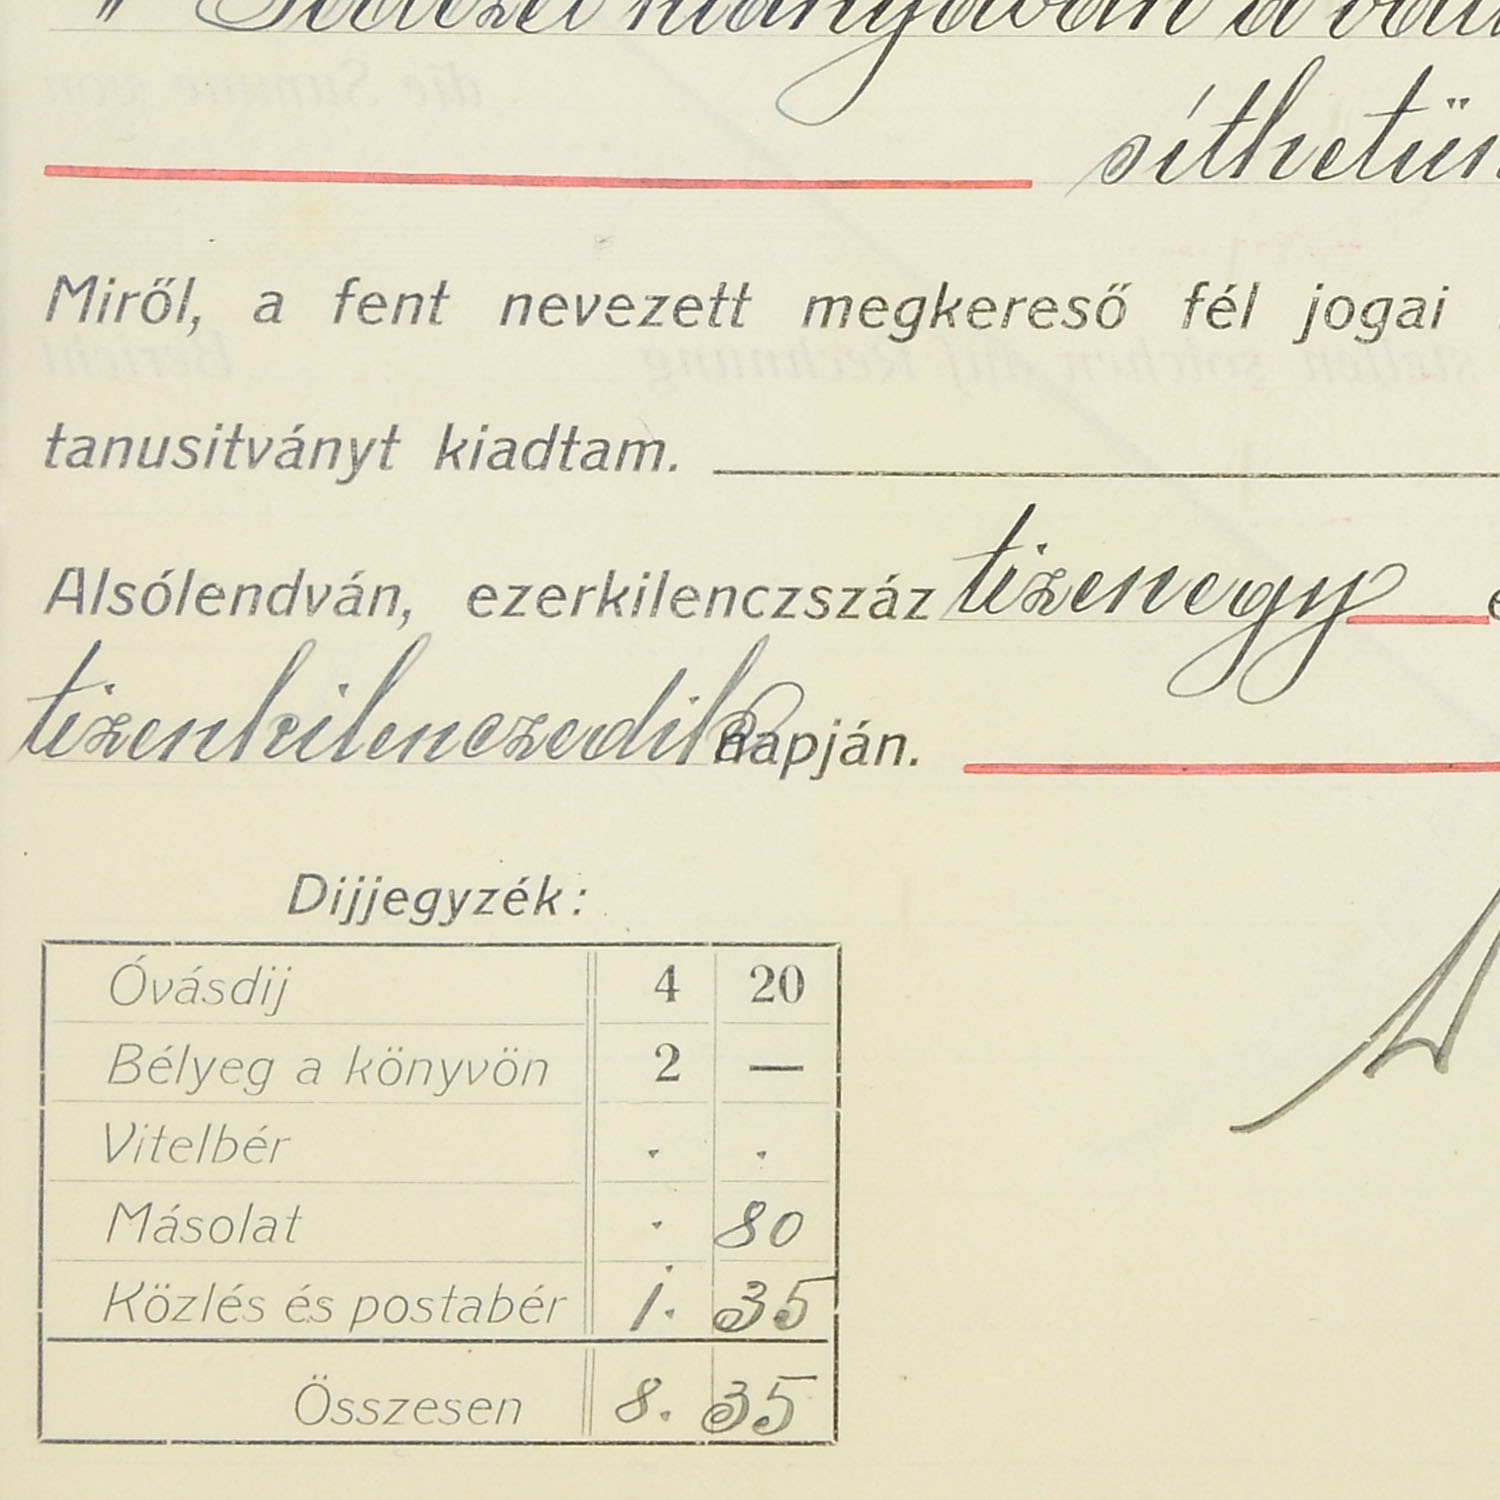 hiányában a
síthetün
Miről, a fent nevezett megkereső fél jogai
tanusitványt kiadtam.
Alsólendván, ezerkilenczszáz tizenegy
tizenkilenczedik napján.
Dijjegyzék:
Óvásdij 4 20
Bélyeg a könyvön 2 —
Vitelbér . .
Másolat . 80
Közlés és postabér 1. 35
Összesen 8. 35